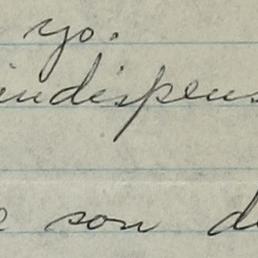 yo.
indispens
e son d